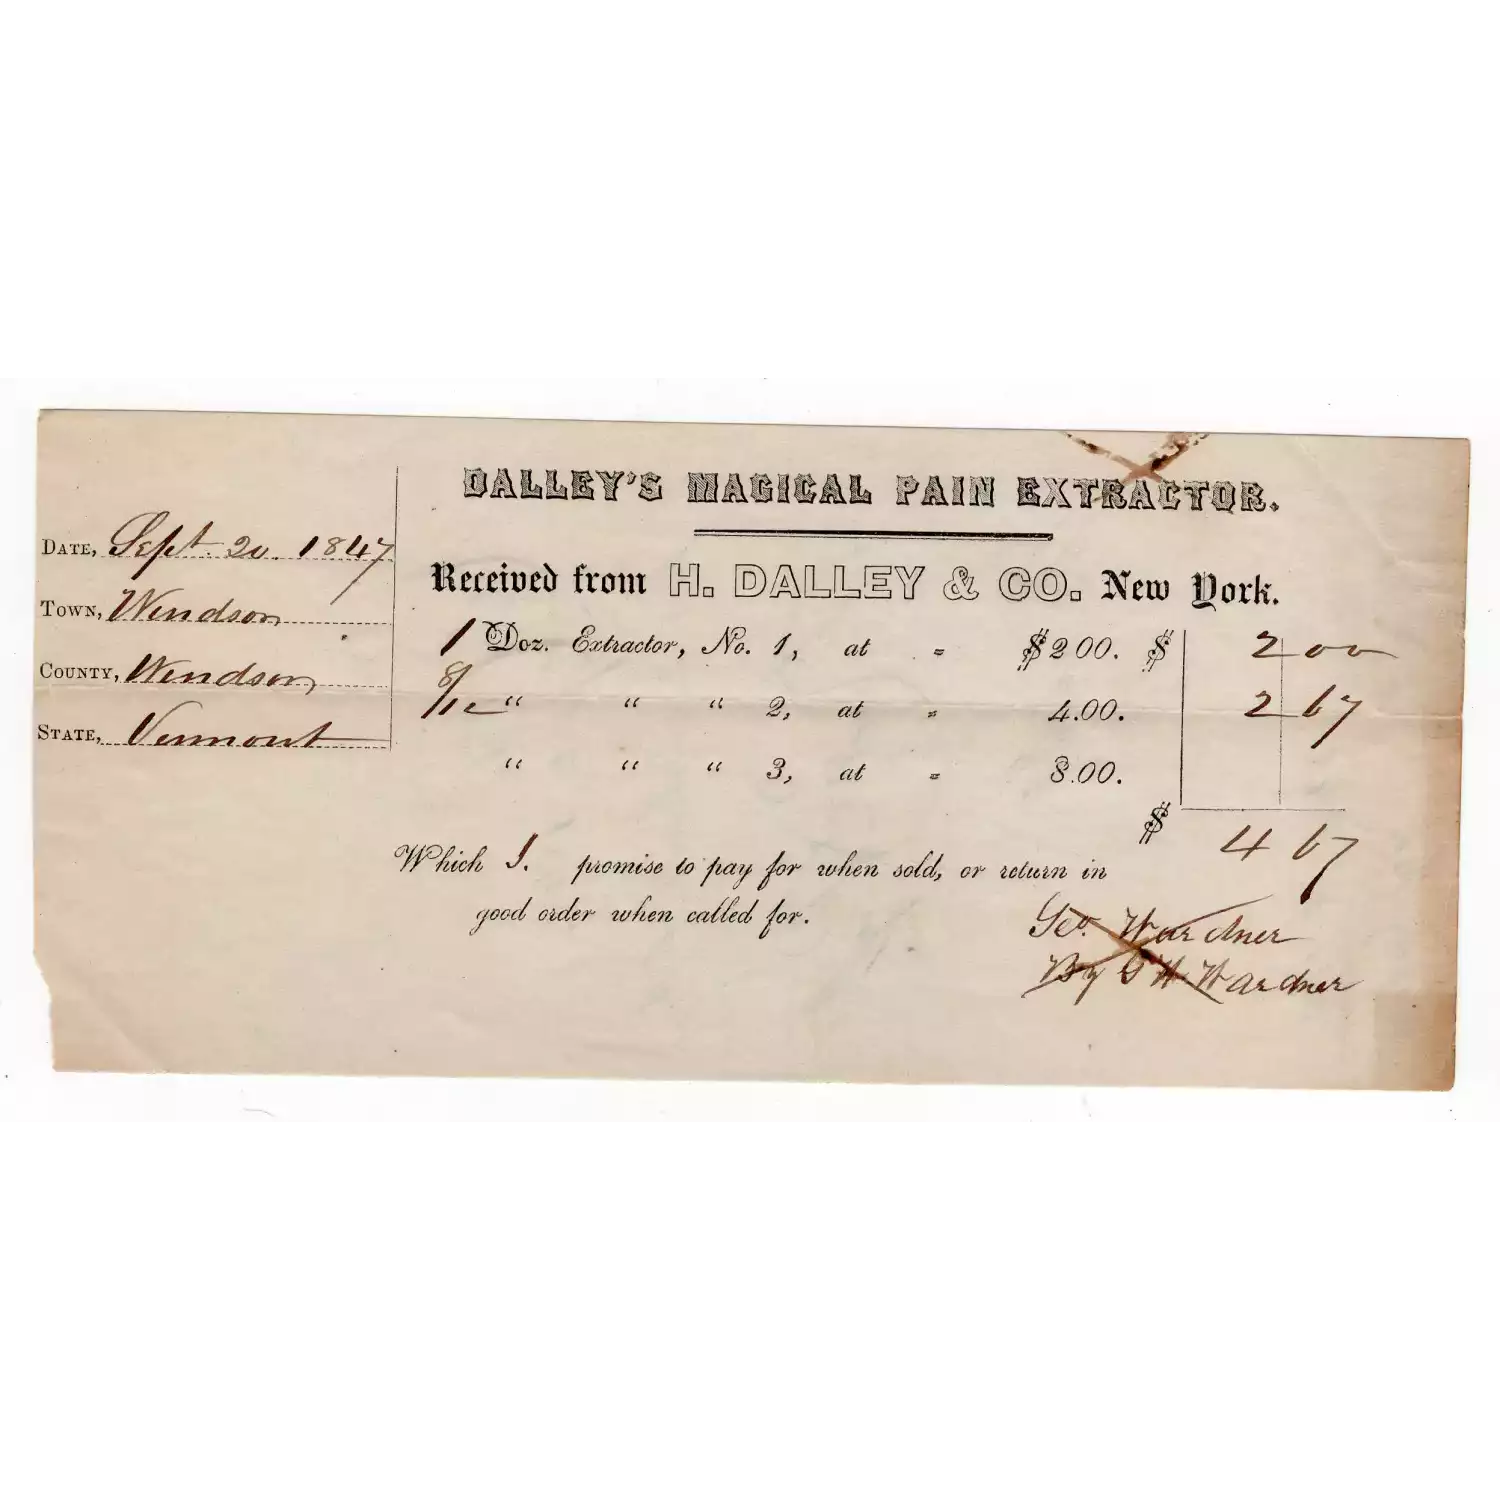 DALLEY'S MAGICAL PAIN EXTRACTOR.
DATE, Sept. 20. 1847
TOWN, Windsor
COUNTY, Windsor
STATE, Vermont
Received from H. DALLEY & CO. New York.
1 Doz. Extractor, No. 1, at = $2 00. $ 2 00
8/12 " " " 2, at = 4.00. 2 67
" " " 3, at = 8.00.
$ 4 67
Which I. promise to pay for when sold, or return in
good order when called for.
Geo. Wardner
By G W. Wardner